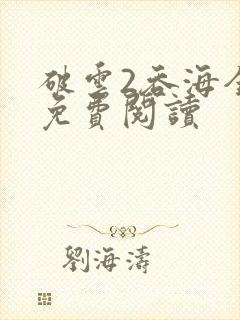 破雲2吞海全
免費閱讀
劉海濤